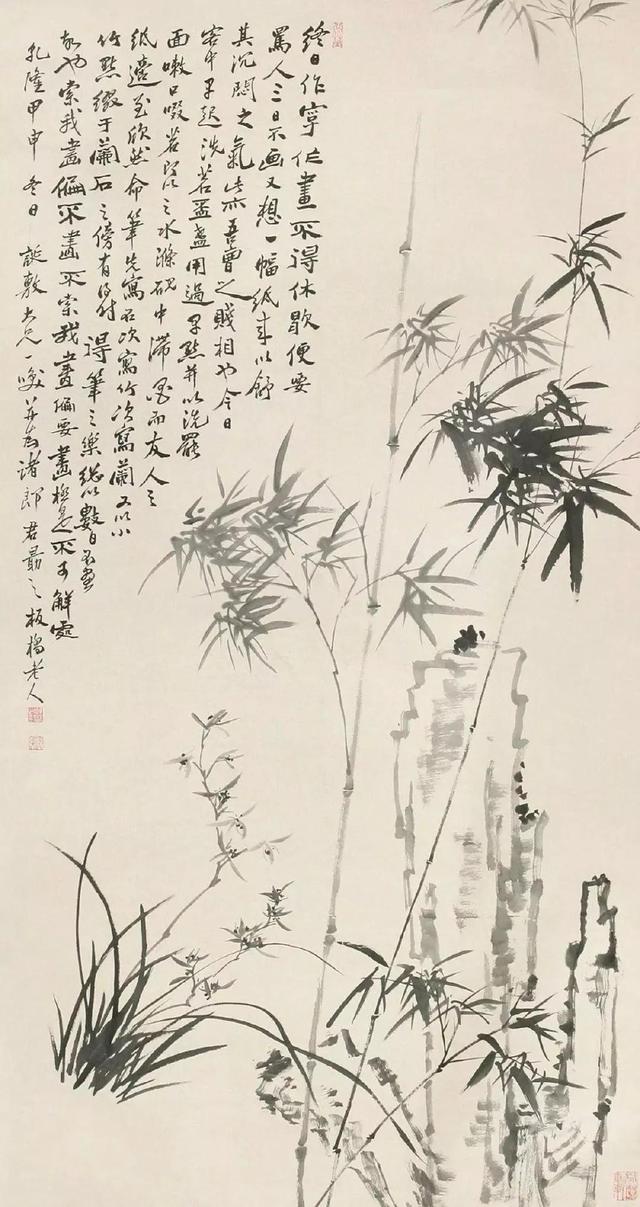 終日作字作畫不得休歇便要
罵人三日不画又想一幅紙來以舒
其沉悶之氣此亦吾曹之賤相也今日
客中早起洗茗盃盞用過早點并以洗罷
面嗽口啜茗之水滌硯中滯墨而友人之
紙適至欣然命筆先寫石次寫竹次寫蘭又以小
竹點綴于蘭石之傍有得時得筆之樂總以數日不畫
故也索我畫偏不畫不索我畫偏要畫極是不可解處
乾隆甲申冬日 誕敷大兄一笑并為諸郎君勗之板橋老人